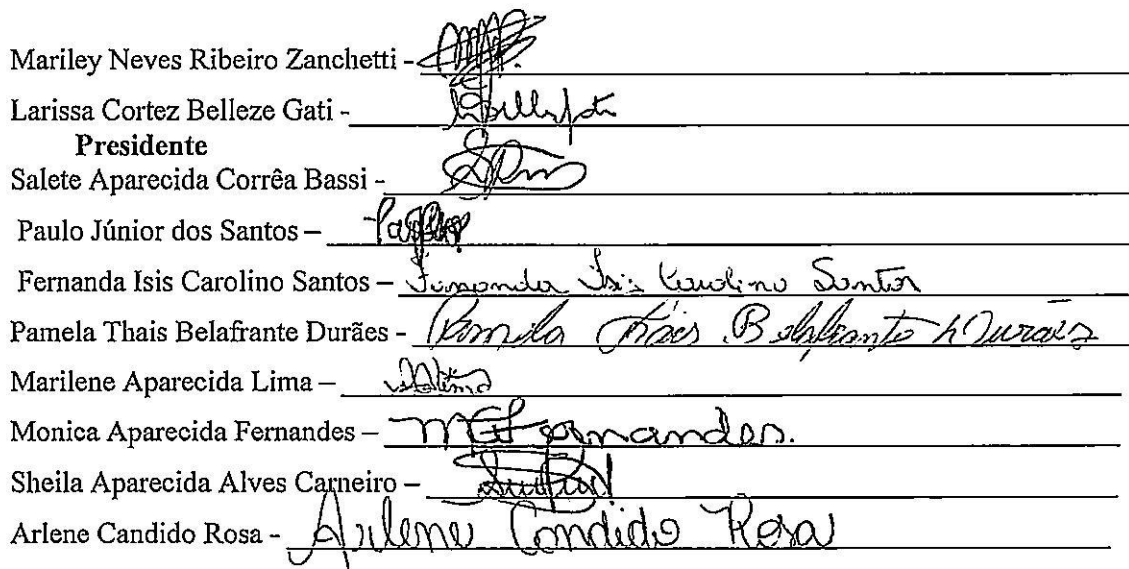 Mariley Neves Ribeiro Zanchetti -
Larissa Cortez Belleze Gati -
Presidente
Salete Aparecida Corrêa Bassi -
Paulo Júnior dos Santos –
Fernanda Isis Carolino Santos – Fernanda Isis Carolino Santos
Pamela Thais Belafrante Durães - Pamela Thais Belafrante Durães
Marilene Aparecida Lima –
Monica Aparecida Fernandes – MAFernandes.
Sheila Aparecida Alves Carneiro –
Arlene Candido Rosa - Arlene Candido Rosa